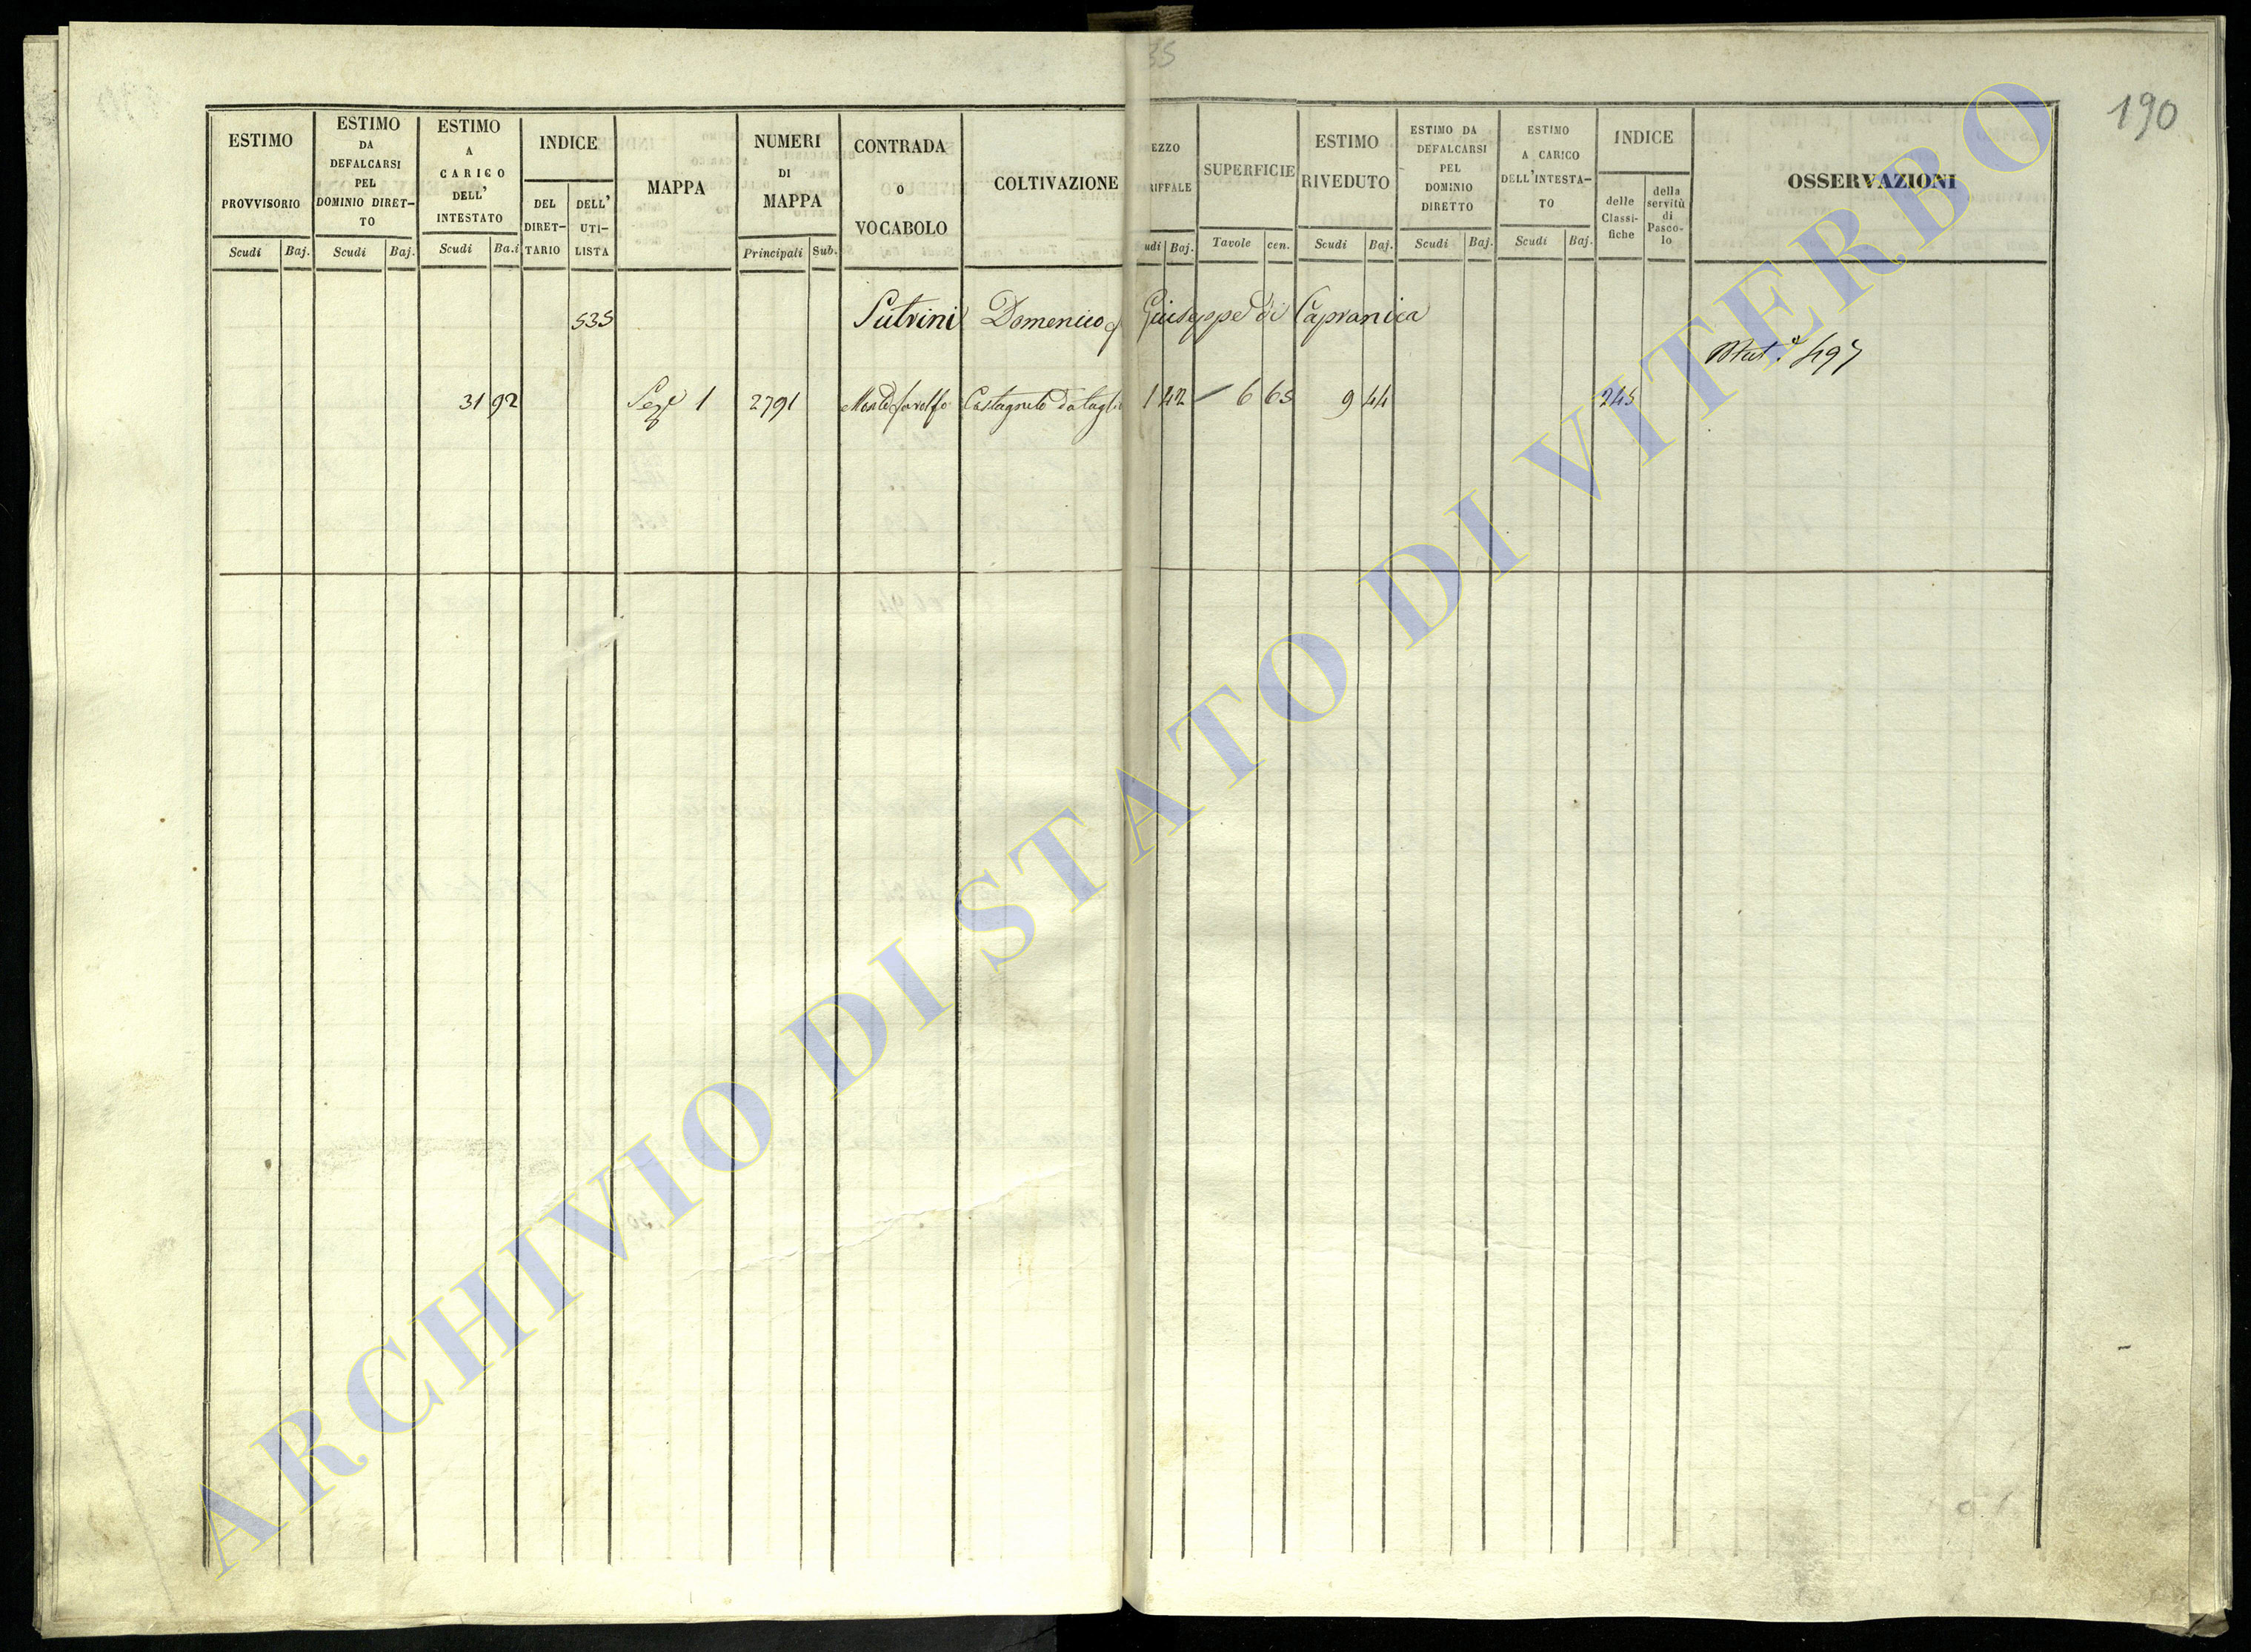 35
190
ESTIMO PROVVISORIO
Scudi Baj.
ESTIMO DA DEFALCARSI PEL DOMINIO DIRET-TO
Scudi Baj.
ESTIMO A CARICO DELL' INTESTATO
Scudi Ba.i
INDICE
DEL DIRET-TARIO
DELL' UTI-LISTA
MAPPA
NUMERI DI MAPPA
Principali Sub.
CONTRADA O VOCABOLO
COLTIVAZIONE
EZZO RIFFALE
udi Baj.
SUPERFICIE
Tavole cen.
ESTIMO RIVEDUTO
Scudi Baj.
ESTIMO DA DEFALCARSI PEL DOMINIO DIRETTO
Scudi Baj.
ESTIMO A CARICO DELL'INTESTA-TO
Scudi Baj.
INDICE
delle Classi-fiche
della servitù di Pasco-lo
OSSERVAZIONI
535 Sutrini Domenico q Giuseppe di Capranica
31 92 Sez.e 1 2791 Castagneto da tagli 1 42 6 65 9 44 245
ARCHIVIO DI STATO DI VITERBO